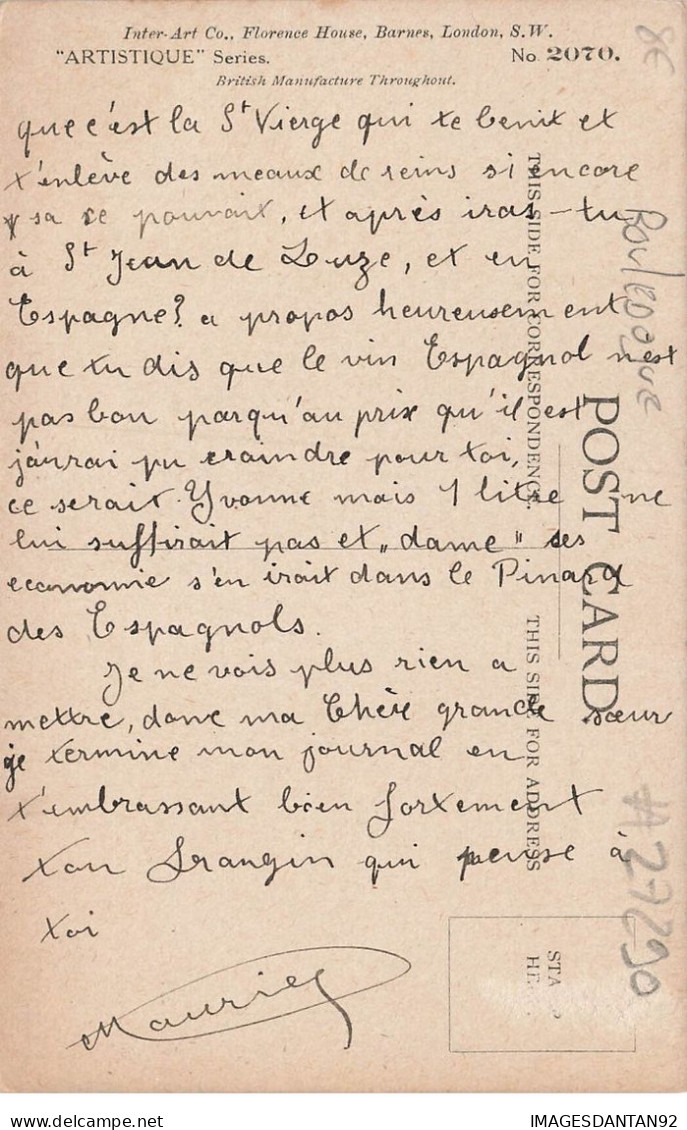 Inter-Art Co., Florence House, Barnes, London, S.W.
"ARTISTIQUE" Series. No. 2070.
British Manufacture Throughout.
8€
que c'est la St Vierge qui te benit et
t'enlève des meaux de reins si encore
sa se pouvait, et après iras-tu
à St Jean de Luze, et en
Espagne? a propos heureusement
que tu dis que le vin Espagnol n'est
pas bon parqu'au prix qu'il est
j'aurai pu craindre pour toi,
ce serait Yvonne mais 1 litre ne
lui suffirait pas et „dame" ses
economie s'en irait dans le Pinard
des Espagnols.
Je ne vois plus rien a
mettre, donc ma Chère grande sœur
je termine mon journal en
t'embrassant bien fortement
ton frangin qui pense à
toi
Maurice
THIS SIDE FOR CORRESPONDENCE.
POST CARD
THIS SIDE FOR ADDRESS
STA P
HE
27290
IMAGESDANTAN92